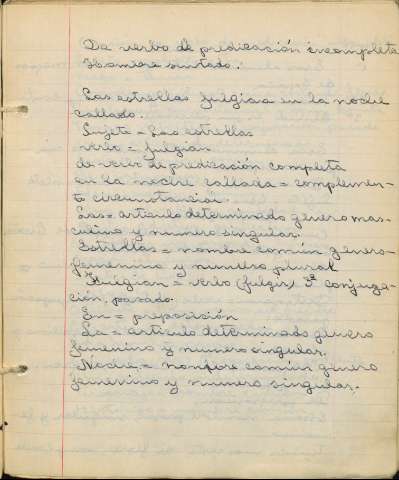 De verbo de predicación incompleta
Hombre sentado.
Las estrellas fulgian en la noche
callado.
Sujeto = Las estrellas
verbo = fulgian
de verbo de predicación completa
en la noche callada = complemen-
to circunstancial.
Las = articulo determinado genero mas-
culino y numero singular.
Estrellas = nombre común genero
femenino y numero plural
Fulgian = verbo (fulgir) 3ª conjuga-
ción, pasado
En = preposición
La = articulo determinado genero
femenino y numero singular.
Noche = nombre común genero
femenino y numero singular.